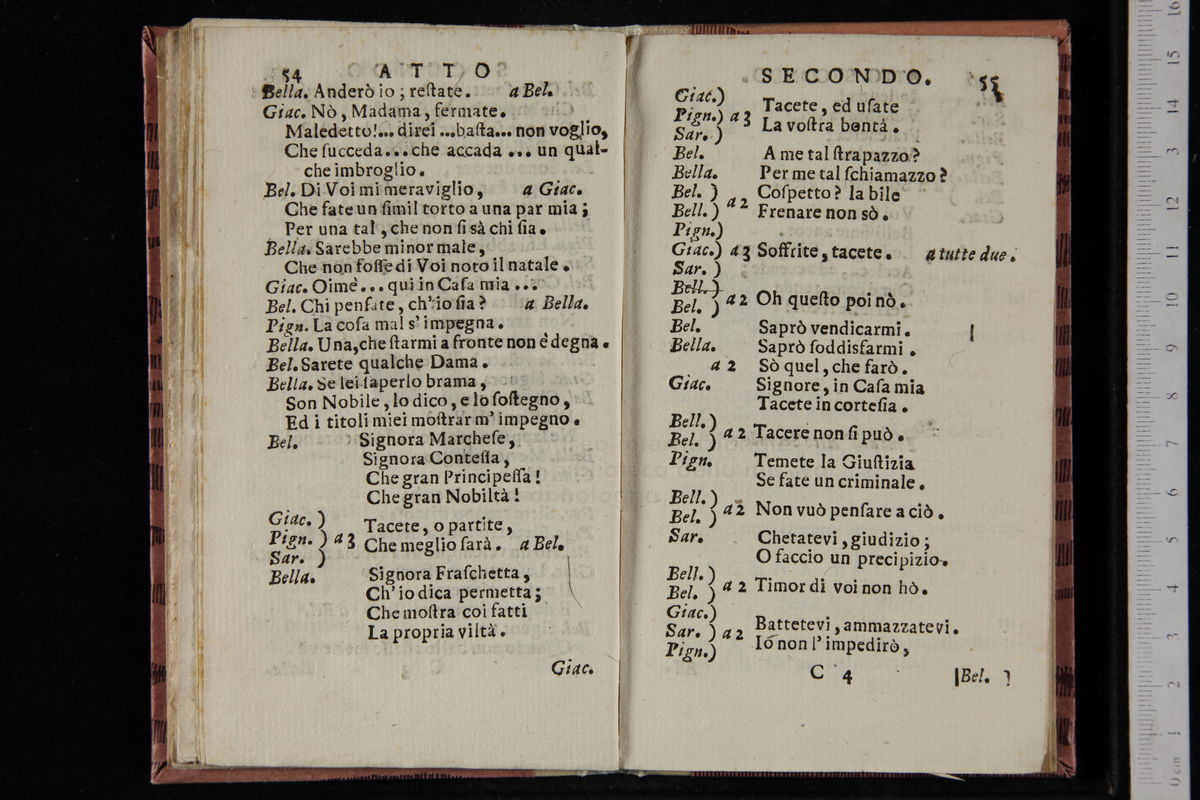 54 ATTO
Bella. Anderò io; reſtate. a Bel.
Giac. Nò, Madama, fermate.
Maledetto!... direi ...baſta... non voglio,
Che ſucceda...che accada ... un qual-
che imbroglio.
Bel. Di Voi mi meraviglio, a Giac.
Che fate un ſimil torto a una par mia;
Per una tal, che non ſi sà chi ſia.
Bella. Sarebbe minor male,
Che non foſſe di Voi noto il natale.
Giac. Oimè... qui in Caſa mia ...
Bel. Chi penſate, ch'io ſia? a Bella.
Pign. La coſa mal s'impegna.
Bella. Una, che ſtarmi a fronte non è degna.
Bel. Sarete qualche Dama.
Bella. Se lei ſaperlo brama,
Son Nobile, lo dico, e lo ſoſtegno,
Ed i titoli miei moſtrar m'impegno.
Bel. Signora Marcheſe,
Signora Conteſſa,
Che gran Principeſſa!
Che gran Nobiltà!
Giac. )
Pign. ) a 3 Tacete, o partite,
Sar. ) Che meglio farà. a Bel.
Bella. Signora Fraſchetta,
Ch'io dica permetta;
Che moſtra coi fatti
La propria viltà.
Giac.
SECONDO. 55
Giac.) Tacete, ed uſate
Pign.) a 3 La voſtra bontà.
Sar. )
Bel. A me tal ſtrapazzo?
Bella. Per me tal ſchiamazzo?
Bel. ) a 2 Coſpetto? la bile
Bell. ) Frenare non sò.
Pign.)
Giac.) a 3 Soffrite, tacete. a tutte due.
Sar. )
Bell. )
Bel. ) a 2 Oh queſto poi nò.
Bel. Saprò vendicarmi.
Bella. Saprò ſoddisfarmi.
a 2 Sò quel, che farò.
Giac. Signore, in Caſa mia
Tacete in corteſia.
Bell. )
Bel. ) a 2 Tacere non ſi può.
Pign. Temete la Giuſtizia
Se fate un criminale.
Bell. )
Bel. ) a 2 Non vuò penſare a ciò.
Sar. Chetatevi, giudizio;
O faccio un precipizio.
Bell. )
Bel. ) a 2 Timor di voi non hò.
Giac.)
Sar. ) a 2 Battetevi, ammazzatevi.
Pign.) Io non l'impedirò,
C 4 Bel. )